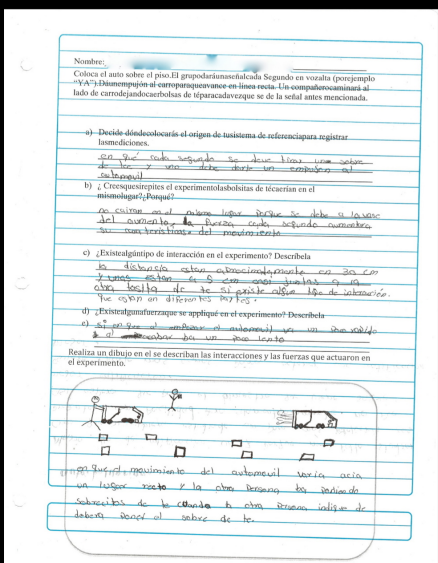 Nombre:
Coloca el auto sobre el piso.El grupodaráunaseñalcada Segundo en vozalta (porejemplo
"YA").Dáunempujón al carroparaqueavance en línea recta. Un compañerocaminará al
lado de carrodejandocaerbolsas de téparacadavezque se de la señal antes mencionada.
a) Decide dóndecolocarás el origen de tusistema de referenciapara registrar
lasmediciones.
en que cada segundo se deve tirar un sobre
de tee y uno debe darle un empujon al
automovil
b) ¿ Creesquesirepites el experimentolasbolsitas de técaerían en el
mismolugar?¿Porqué?
no cairan en el mismo lugar porque se debe a la vase
del aumento, la fuerza cada segundo aumentara
su características del movimiento
c) ¿Existealgúntipo de interacción en el experimento? Descríbela
la distancia estan aproximadamente en 30 cm
y unos estan a 5 cm casi juntas a la
otra bosita de te si existe algun tipo de interacción.
que estan en diferentes partes.
d) ¿Existealgunafuerzaque se appliqué en el experimento? Descríbela
e) si en que al empezar el automovil va un poco rapido
y al acabar ba un poco lento
Realiza un dibujo en el se describan las interacciones y las fuerzas que actuaron en
el experimento.
en que el movimiento del automovil varia acia
un lugar recto y la otra persona ba
sobrecitos de te cuando la otra persona indique de
debera poner el sobre de te.